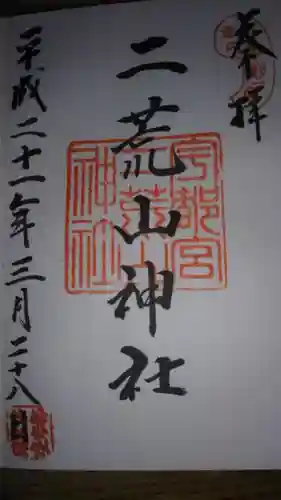 奉拝
二荒山神社
宇都宮
二荒山
神社
平成二十一年三月二十八日